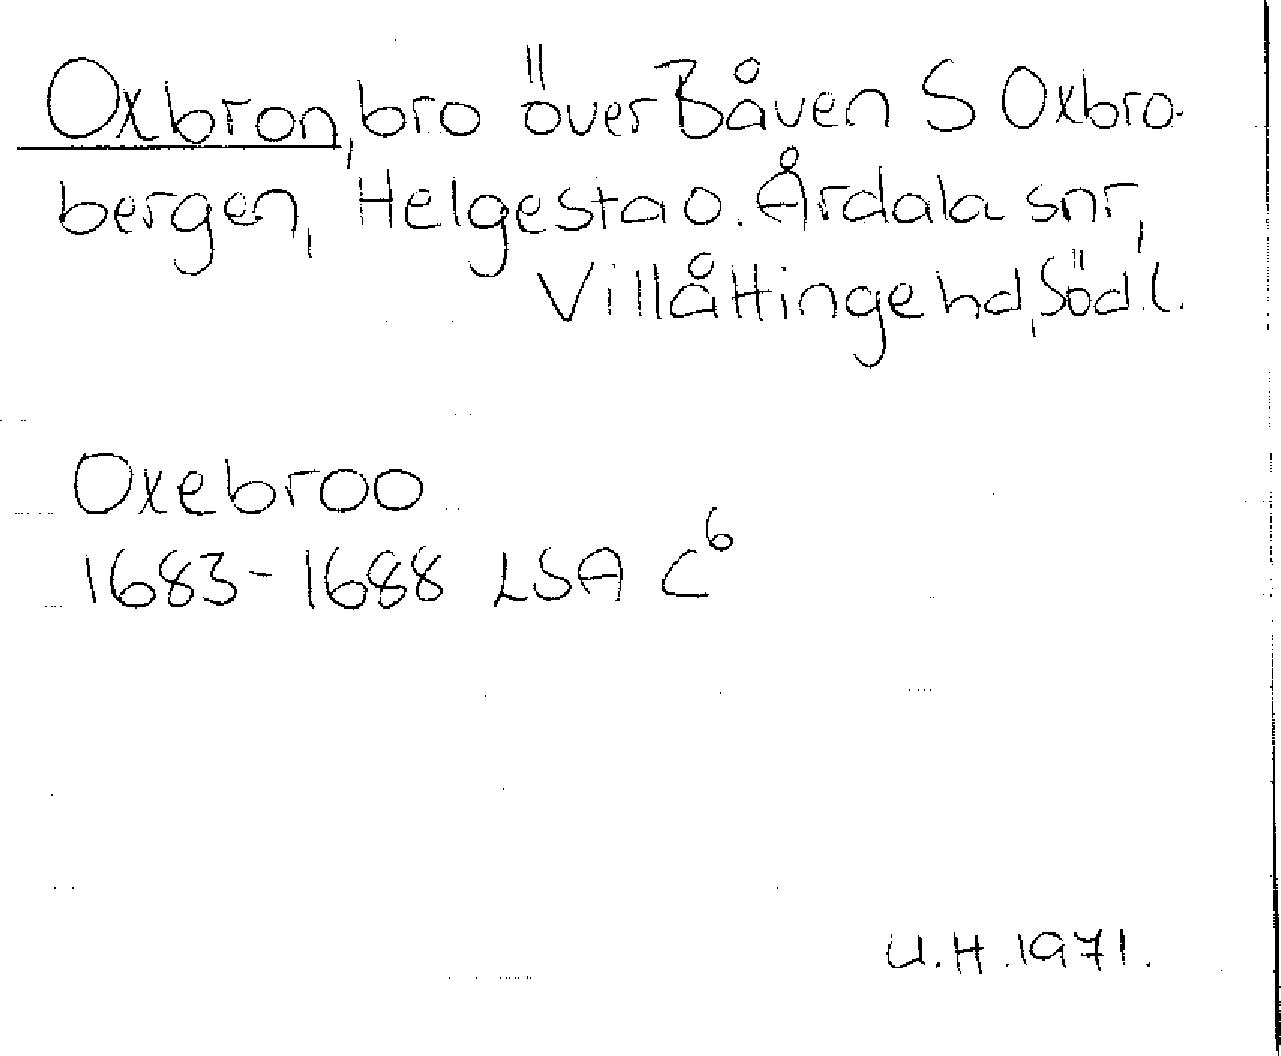 Oxbron, bro över Båven S Oxbro-
bergen, Helgesta o. Årdala snr,
Villåttinge hd, Södl.
Oxebroo
1683-1688 LSA C⁶
U.H. 1971.